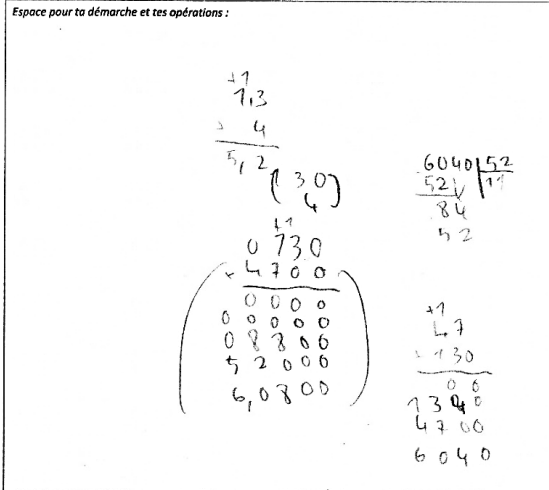 Espace pour ta démarche et tes opérations :
+1
1,3
× 4
5,2
(30)
4
+1
0 130
× 4700
0000
00000
08800
52000
6,0800
6040 52
52 11
84
52
+1
47
× 130
00
1340
4700
6040